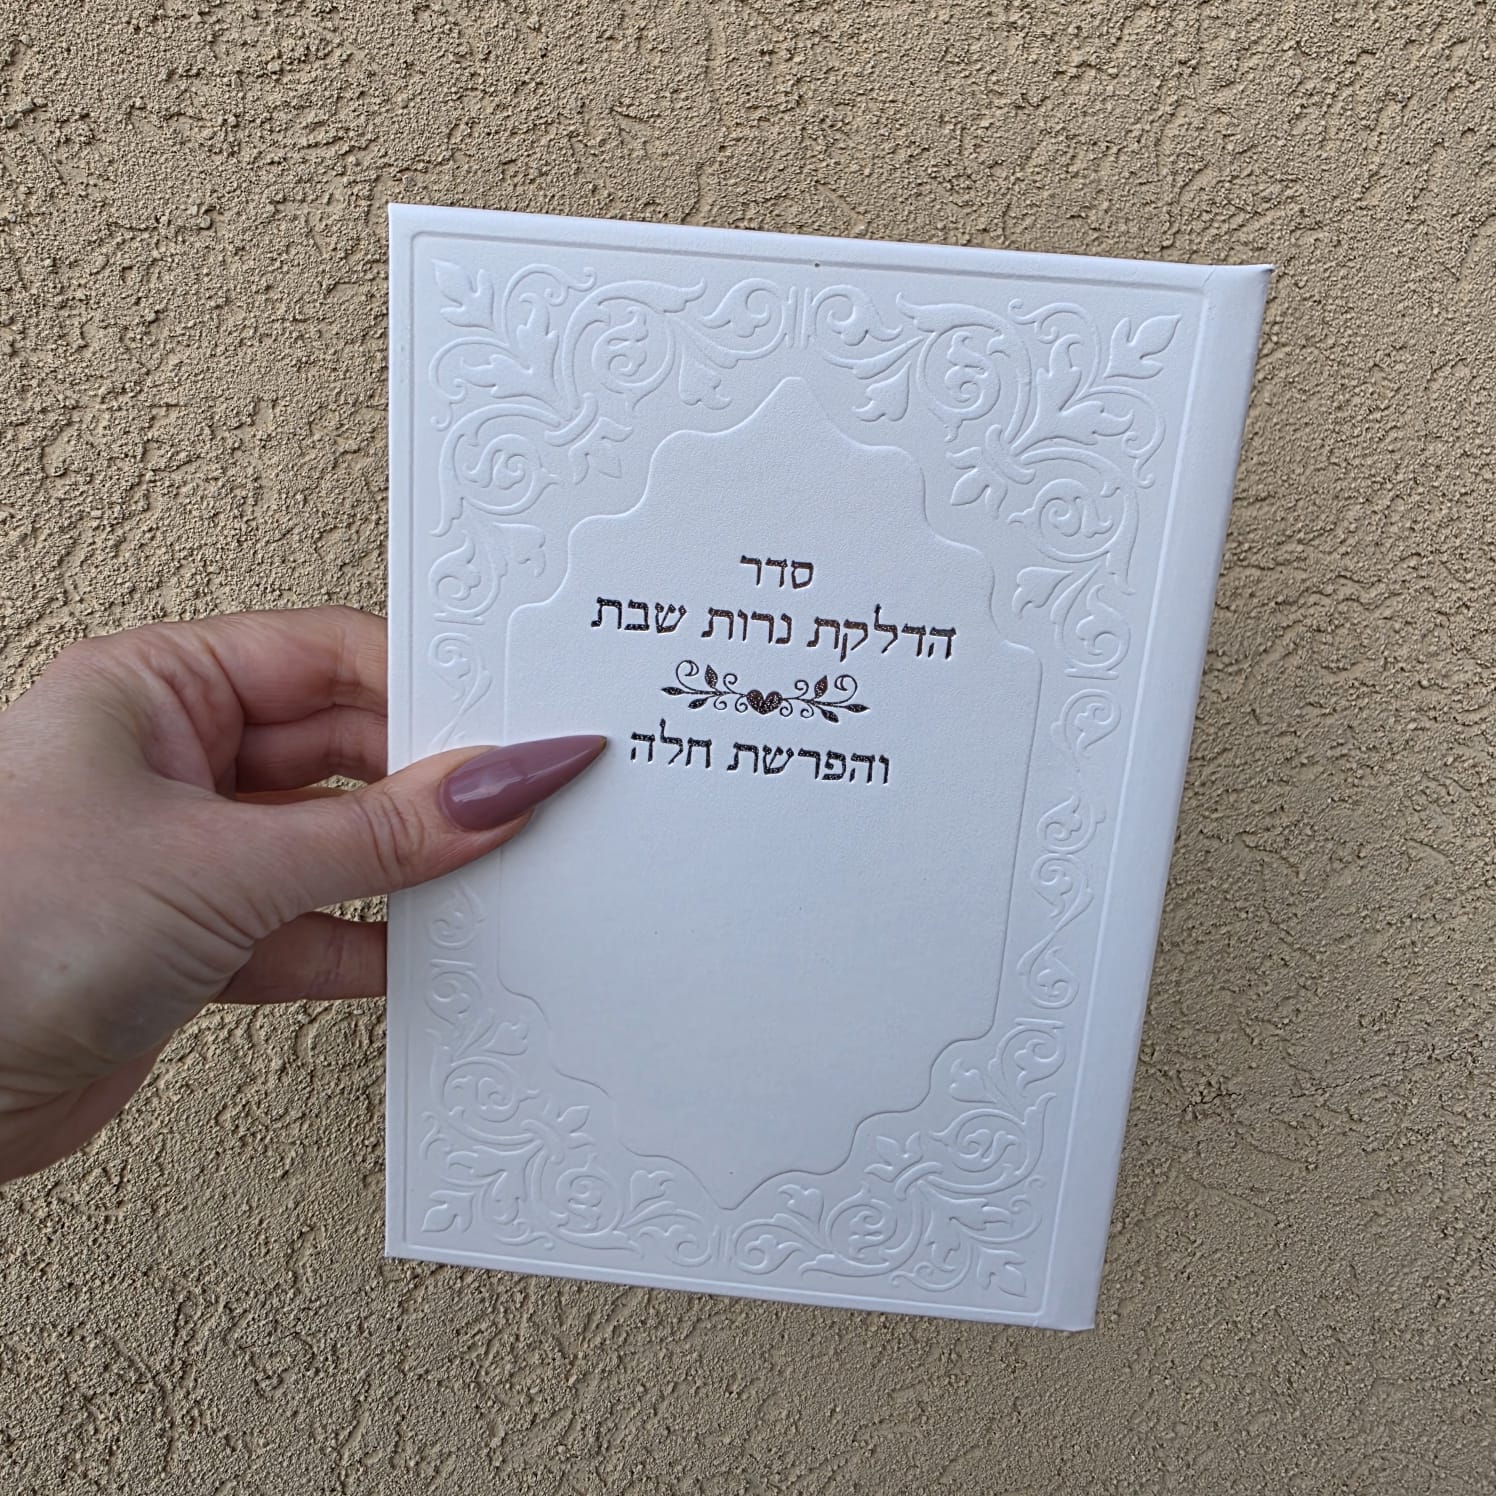 סדר
הדלקת נרות שבת
והפרשת חלה